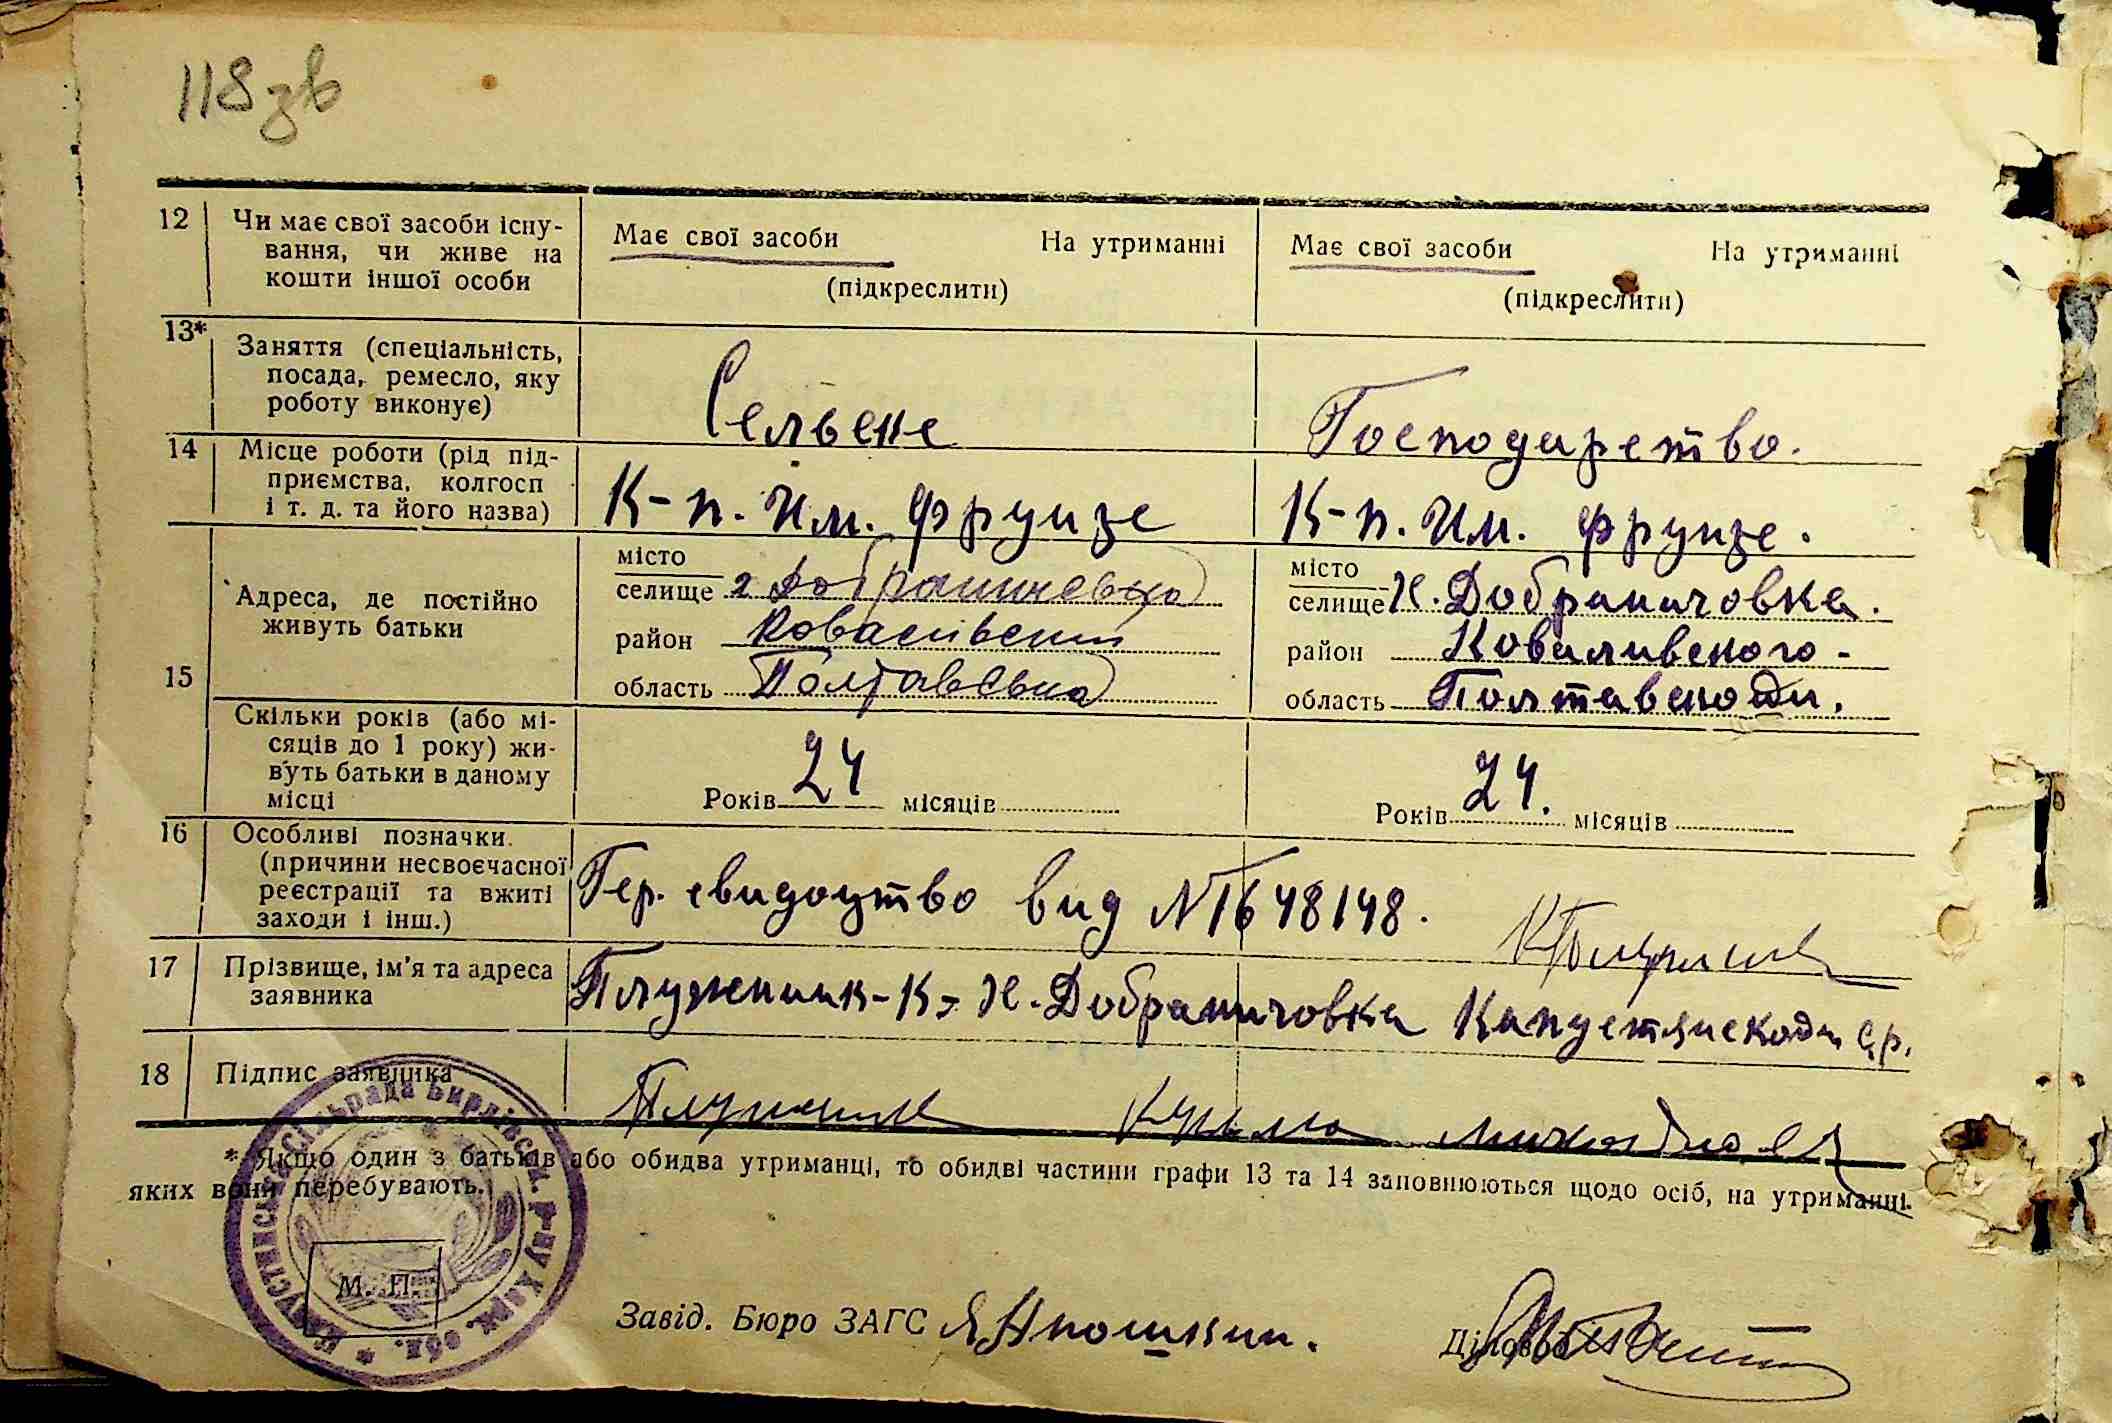 118зв
12 Чи має свої засоби існу-
вання, чи живе на
кошти іншої особи
Має свої засоби На утриманні
(підкреслити)
Має свої засоби На утриманні
(підкреслити)
13* Заняття (спеціальність,
посада, ремесло, яку
роботу виконує)
Сельске
Господарство.
14 Місце роботи (рід під-
приємства, колгосп
і т. д. та його назва)
К-п. Им. Фрунзе
К-п. Им. Фрунзе.
15 Адреса, де постійно
живуть батьки
місто
селище Добраничевка
район Ковалівский
область Полтавська
місто
селище Х. Добраничовка.
район Коваливского-
область Полтавскоди.
Скільки років (або мі-
сяців до 1 року) жи-
вуть батьки в даному
місці
Років 24 місяців
Років 24. місяців
16 Особливі позначки
(причини несвоєчасної
реєстрації та вжиті
заходи і інш.)
Гер. свидоцтво вид N1648148.
17 Прізвище, ім'я та адреса
заявника
Плужник-К. Х. Добраничовка Капустянскоди с,р.
18 Підпис заявника
Плужник Кузьма
* Якщо один з батьків або обидва утриманці, то обидві частини графи 13 та 14 заповнюються щодо осіб, на утриманні
яких вони перебувають.
Капустинська Сільрада Бирлівськ. р-ну Харк. обл. *
М. П.
Завід. Бюро ЗАГС
Діловод